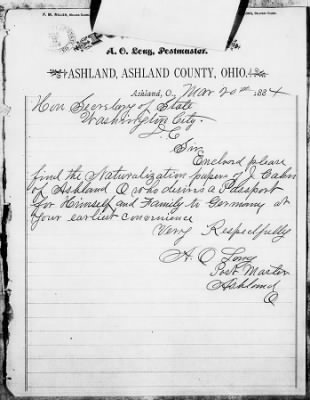 A. O. Long, Postmaster.
ASHLAND, ASHLAND COUNTY, OHIO,
Ashland, O, Mar 20th 1884
Hon Secretary of State
Washington City.
D. C
Sir
Enclosed please
find the Naturalization papers of J. Cahn
of Ashland O who desires a Passport
for Himself and Family to Germany at
your earliest convenience
Very Respectfully
A. O Long
Post Master
Ashland
O